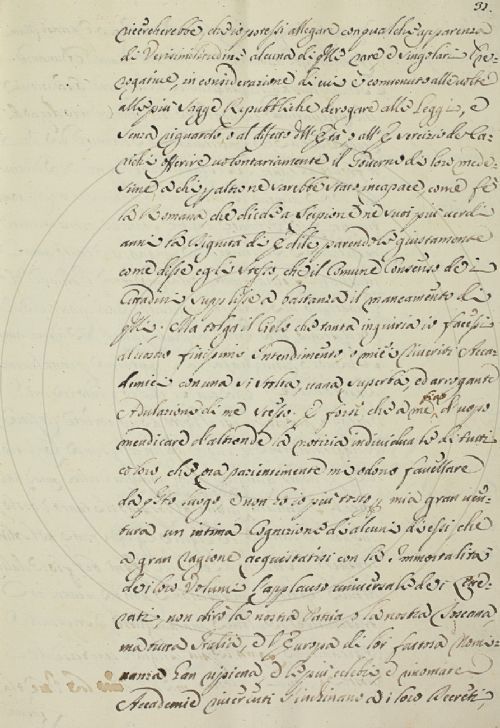 31.
ricercherebbe, che io potessi allegare con qualche apparenza
di Verisimilitudine alcuna di q.lle rare e singolari Pre-
rogative, in considerazione di cui è convenuto alle volte
alle più sagge Repubbliche derogare alle Leggi, e
senza riguardo, o al difetto dell'Età, o all'Esercizio de Ca-
richi offerire volontariamente il Governo di loro mede-
sime a chi p altro ne sarebbe stato incapace come fè
la Romana che diede a Scipione nè suoi più verdi
anni la Dignità di Edile, parendole giustamente
come disse egli stesso, che il Comune Consenso de i
Cittadini supplisse a bastanza il mancamento di
q.lli. Ma tolga il Cielo che tanta ingiuria io facessi
al vostro finissimo Intendimento o miei Riveriti Acca-
demici con una sì stolta, vana, superba, ed arrogante
Adulazione di me stesso. E forsi che a me, d'uopo
mendicare d'altronde la notizia individuale di tutti
coloro, che ora pazientemente mi odono favellare
da q.sto luogo, e non ho io più tosto p mia gran ven-
tura un intima Cognizione di alcuni di essi, che
a gran ragione acquistatisi con la Immortalità
de i loro Volumi l'applauso universale de i
non dirò la nostra Patria, o la nostra Toscana,
ma tutta Italia, e l'Europa di lor famosa Nomi-
nanza han ripiena, e le più celebri, e rinomate
Accademie riverenti s'inchinano a i loro Decreti,